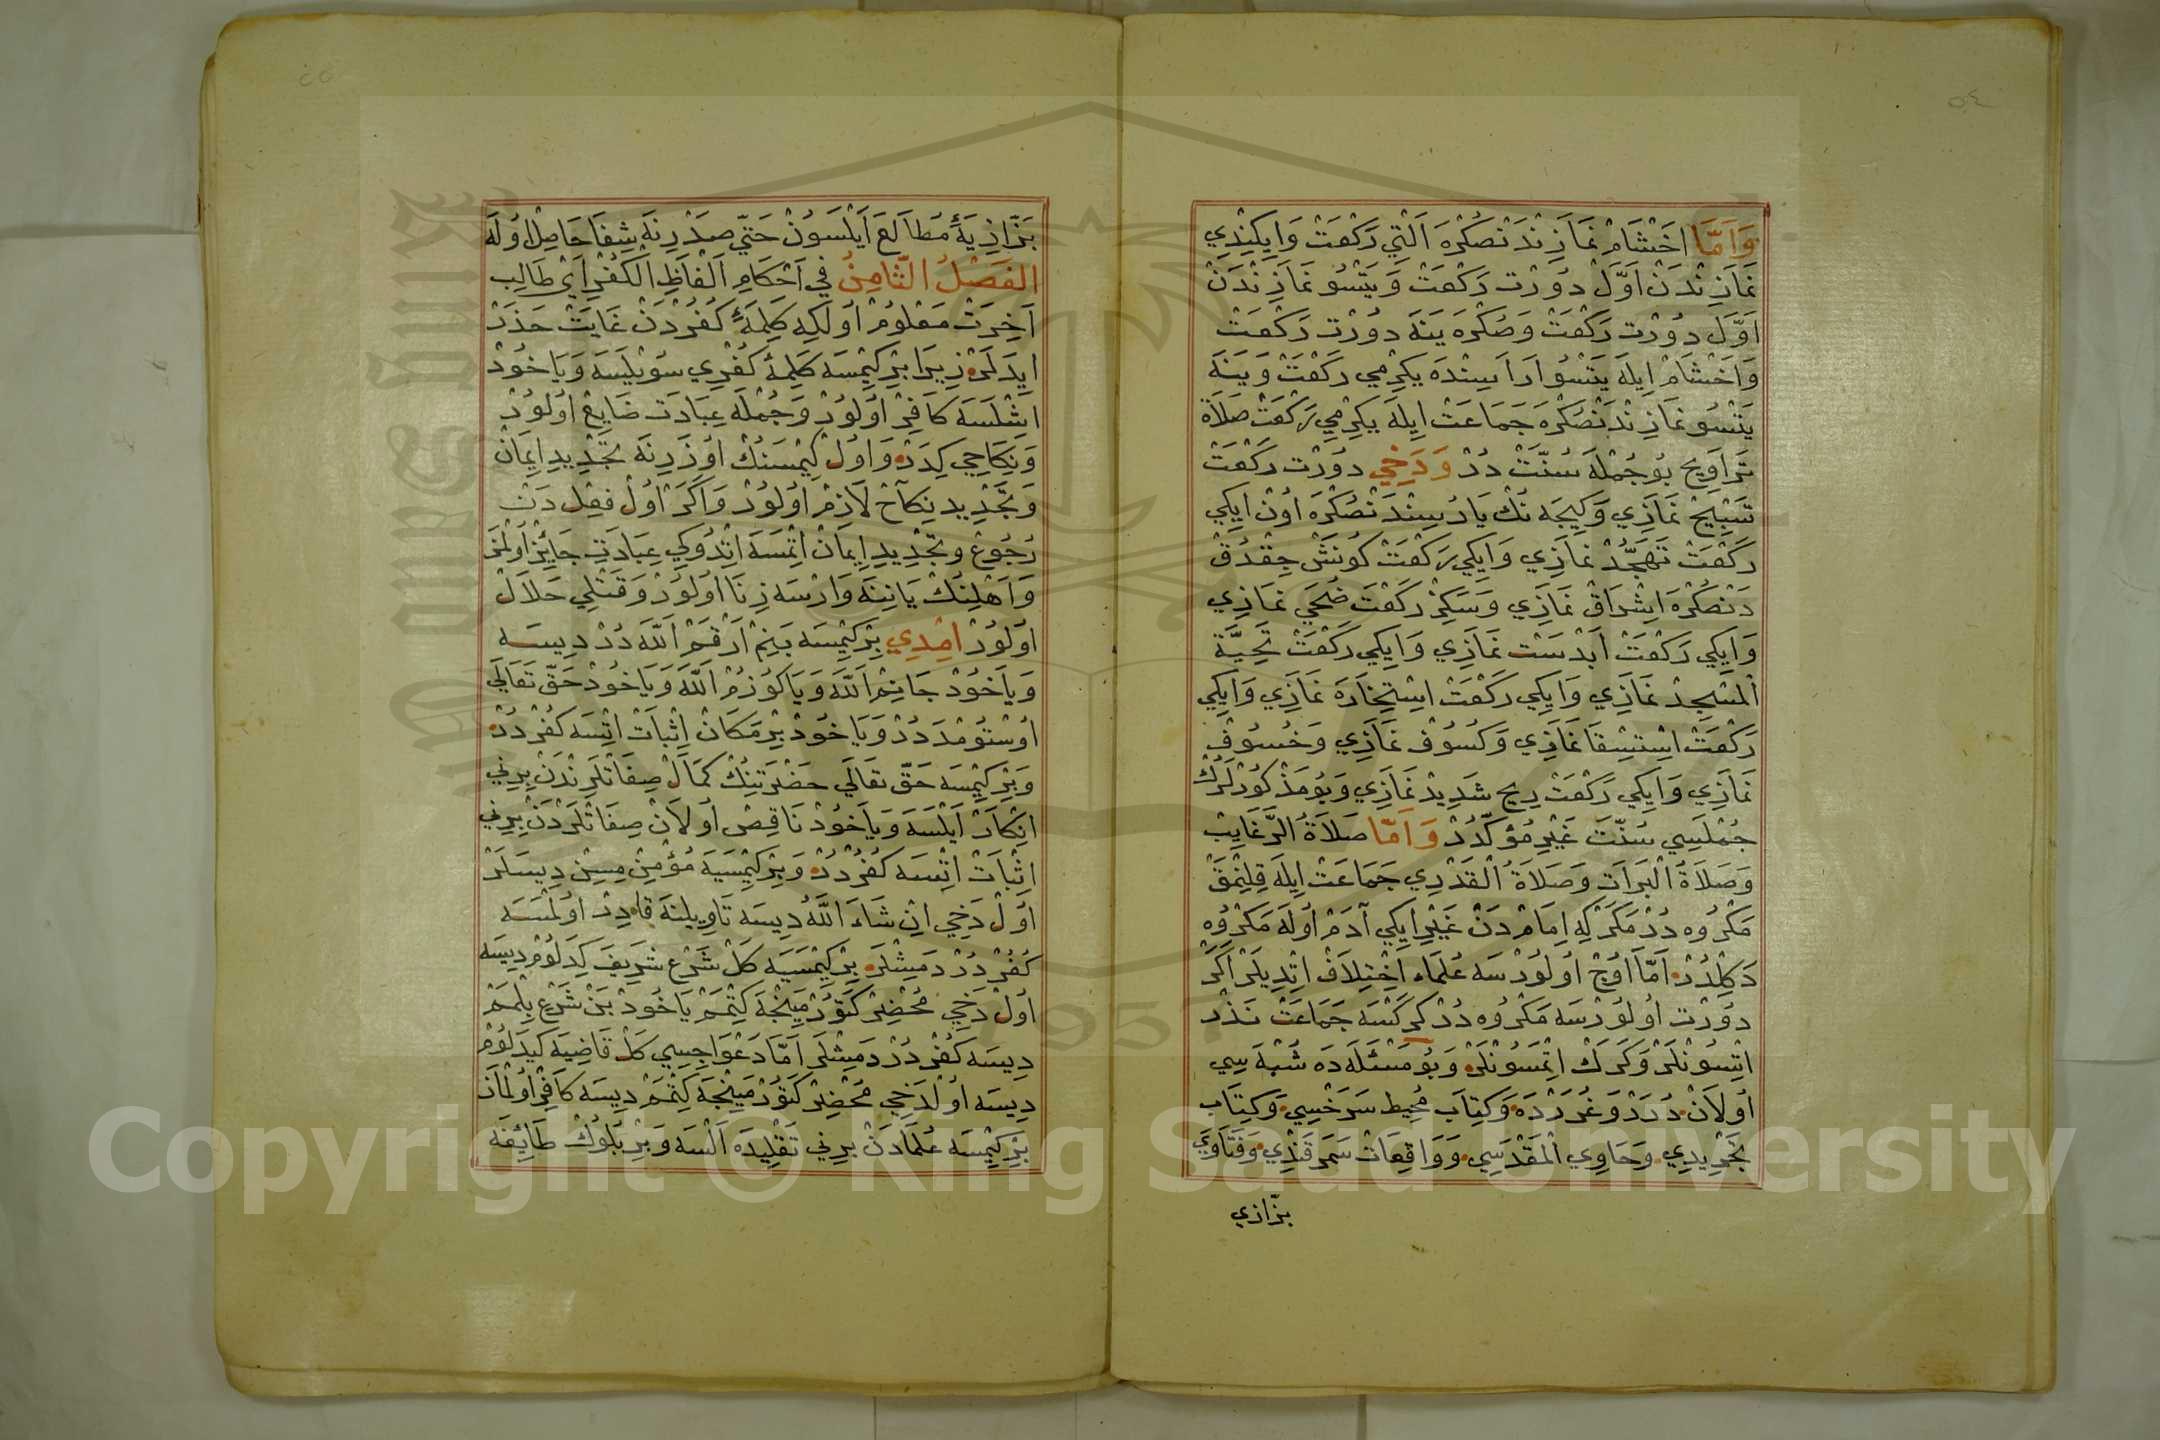 ٥٤
وَاَمَّا اَخْشَامْ نَمَازِنْدَنْصُكْرَه اَلْتِي رَكْعَتْ وَايِكِنْدِي
نَمَازِنْدَنْ اَوَّلْ دُوْرْت رَكْعَتْ وَيَتْسُو نَمَازِنْدَنْ
اَوَّلْ دُوْرْت رَكْعَتْ وَصُكْرَه يَنَه دوُرْت رَكْعَتْ
وَاَخْشَامْ اِيلَه يَتْسُو اَرَاسِنْدَه يِكِرْمِي رَكْعَتْ وَيَنَه
يَتْسُو نَمَازِنْدَنْصُكْرَه جَمَاعَتْ اِيلَه يِكِرْمِي رَكْعَتْ صَلَاة
تَرَاوِيح بُوجُمْلَه سُنَّتْ دُرْ وَدَخِي دُوْرْت رَكْعَتْ
تَسْبِيحْ نَمَازِي وَكِيجَه نْكْ يَارُسِنْدَنْصُكْرَه اوُنْ اِيكِي
رَكْعَتْ تَهَجُّدْ نَمَازِي وَايِكِي رَكْعَتْ كُونَشْ چِقْدُقْ
دَنْصُكْرَه اِشْرَاقْ نَمَازِي وَسَكِزْ رَكْعَتْ ضُحَي نَمَازِي
وَايِكِي رَكْعَتْ اَبْدَسْت نَمَازِي وَايِكِي رَكْعَتْ تَحِيَّة
الْمَسْجِدْ نَمَازِي وَايِكِي رَكْعَتْ اِسْتِخَارَه نَمَازِي وَايِكِي
رَكْعَتْ اِسْتِسْقَا نَمَازِي وَكُسُوفْ نَمَازِي وَخُسُوفْ
نَمَازِي وَايِكِي رَكْعَتْ رِيح شَدِيدْ نَمَازِي وَبُومَذْكُوْرْلَرُكْ
جُمْلَسِي سُنَّتْ غَيْرِ مُؤَكَّدْدُرْ وَاَمَّا صَلَاةُ الرَّغَايِبْ
وَصَلَاةُ الْبَرَاتْ وَصَلَاةُ الْقَدْرِي جَمَاعَتْ اِيلَه قِلِنْمَقْ
مَكْرُوه دُرْ مَكَرْكِه اِمَامْ دَنْ غَيْرِ اِيكِي آدَمْ اُولَه مَكْرُوه
دَكِلْدُرْ اَمَّا اوُچْ اُولُوْرْسَه عُلَمَاء اِخْتِلَافْ اِتْدِيلَرْ اَكَرْ
دوُرْت اُولُوْرْسَه مَكْرُوه دُرْ كَرَكْسَه جَمَاعَتْ نَذْرْ
اِتْسُونْلَرْ وَكَرَكْ اِتْمَسُونْلَرْ وَبُو مَسْئَلَه دَه شُبْهَ سِي
اُولَانْ دُرَرْ وَغُرَرْدَه وَكِتَابْ مُحِيط سَرَخْسِي وَكِتَاب
تَجْرِيدِي وَحَاوِي الْمَقْدَسِي وَوَاقِعَاتْ سَمَرْقَنْدِي وَفَتَاوِي
بزّازي
٥٥
بَزَّازِيَهٴِ مُطَالَعَ اَيْلَسُونْ حَتّٰي صَدْرِنَه شِفَا حَاصِلْ اوُلَه
الفَصْلُ الثَّامِنُ فِي اَحْكَامِ اَلْفَاظِ الْكُفْرِ اَيْ طَالِب
آخِرَتْ مَعْلُومْ اُولَكِه كَلِمَهٴِ كُفُرْدَنْ غَايَتْ حَذَرْ
اِيدَلَرْ زِيرَا بِرْكِيمْسَه كَلِمَهٴِ كُفْرِي سُويْلَسَه وَيَاخُودْ
اِشْلَسَه كَافِرْ اُولُوْرْ وَجُمْلَه عِبَادَتْ ضَايِعْ اُولُوْرْ
وَنِكَاحِي كِدَرْ وَاوُلْ كِيْمْسَنُكْ اوُزَرِنَه تَجْدِيدِ اِيمَانْ
وَتَجْدِيدِ نِكَاحْ لَازِمْ اُولُوْرْ وَاكَرْ اُولْ فِعِلْ دَنْ
رُجُوعْ وَتَجْدِيدِ اِيمَانْ اِتْمَسَه اِتْدُوكِي عِبَادَتْ جَايِزْ اُولْمَزْ
وَاَهْلِنُكْ يَانِنَه وَارْسَه زِنَا اُولُوْرْ وَقَتْلِي حَلَالْ
اُولُوْرْ اِمْدِي بِرْكِيمْسَه بَنِمْ اَرْقَمْ اَللّٰه دُرْ دِيسَه
وَيَاخُودْ جَانِمْ اَللّٰه وَيَا كُوزُمْ اَللّٰه وَيَاخُودْ حَقّ تَعَالَي
اوُسْتُومْدَه دُرْ وَيَاخُودْ بِرْ مَكَانْ اِثْبَاتْ اِتْسَه كُفُرْدُرْ
وَبِرْكِيمْسَه حَقّ تَعَالَي حَضْرَتِنُكْ كَمَالْ صِفَاتْلَرِنْدَنْ بِرِنِي
اِنْكَارْ اَيْلَسَه وَيَاخُودْ نَاقِصْ اُولَانْ صِفَاتْلَرْدَنْ بِرِنِي
اِثْبَاتْ اِتْسَه كُفُرْدُرْ وَبِرْكِيمْسَيَه مُؤْمِنْ مِسِنْ دِيسَلَرْ
اُولْ دَخِي اِنْ شَاءَ اللّٰه دِيسَه تَاوِيلِنَه قَادِرْ اُولْمَسَه
كُفُرْدُرْ دَمِشْلَرْ بِرْكِيمْسَيَه كَلْ شَرْعِ شَرِيفَه كِدَلُومْ دِيسَه
اُولْ دَخِي مُحْضِرْ كَتُورْمَيِنْجَه كِتْمَمْ يَاخُودْ بَنْ شَرْعْ بِلْمَمْ
دِيسَه كُفُرْدُرْ دَمِشْلَرْ اَمَّا دَعْوَاجِيسِي كَلْ قَاضِيَه كِيدَلُومْ
دِيسَه اُولْدَخِي مُحْضِرْ كَتُورْمَيِنْجَه كِتْمَمْ دِيسَه كَافِرْ اُولْمَازْ
بِرْكِيمْسَه عُلَمَادَنْ بِرِنِي تَقْلِيدَه اَلْسَه وَبِرْبُلُوكْ طَائِفَه
Copyright © King Saud University
1957